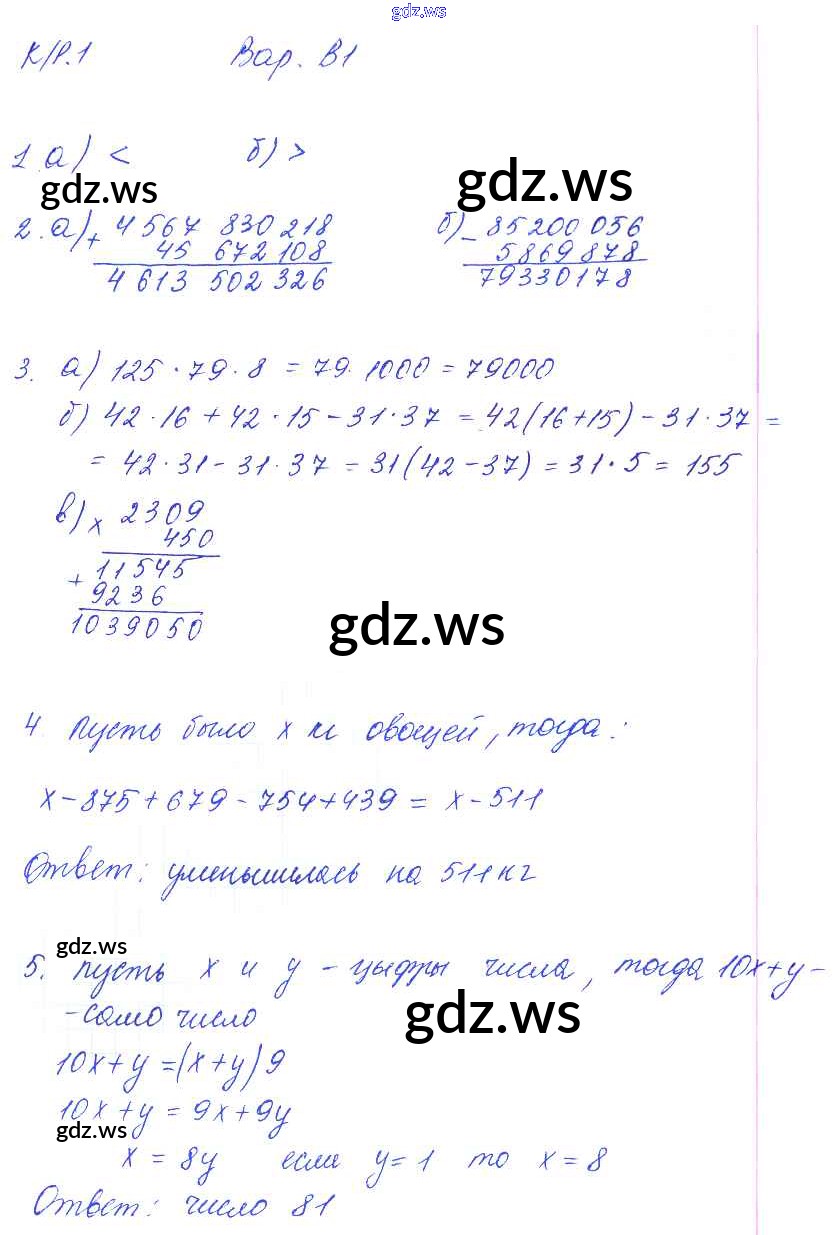 gdz.ws
К/Р.1 Вар. В1
1 а) < б) >
gdz.ws gdz.ws
2. а) + 4 567 830 218 б) - 85200 056
45 672 108 5869 878
4 613 502 326 79330178
3. а) 125 · 79 · 8 = 79 · 1000 = 79000
б) 42 · 16 + 42 · 15 - 31 · 37 = 42(16+15) - 31 · 37 =
= 42 · 31 - 31 · 37 = 31(42 - 37) = 31 · 5 = 155
в) x 2309
450
+ 11545
9236
1039050
gdz.ws
4. Пусть было x кг овощей, тогда:
x - 875 + 679 - 754 + 439 = x - 511
Ответ: уменьшилась на 511 кг
gdz.ws
5. Пусть x и y - цыфры числа, тогда 10x+y -
- само число
gdz.ws
10x + y = (x + y) 9
10x + y = 9x + 9y
gdz.ws
x = 8y если y = 1 то x = 8
Ответ: число 81